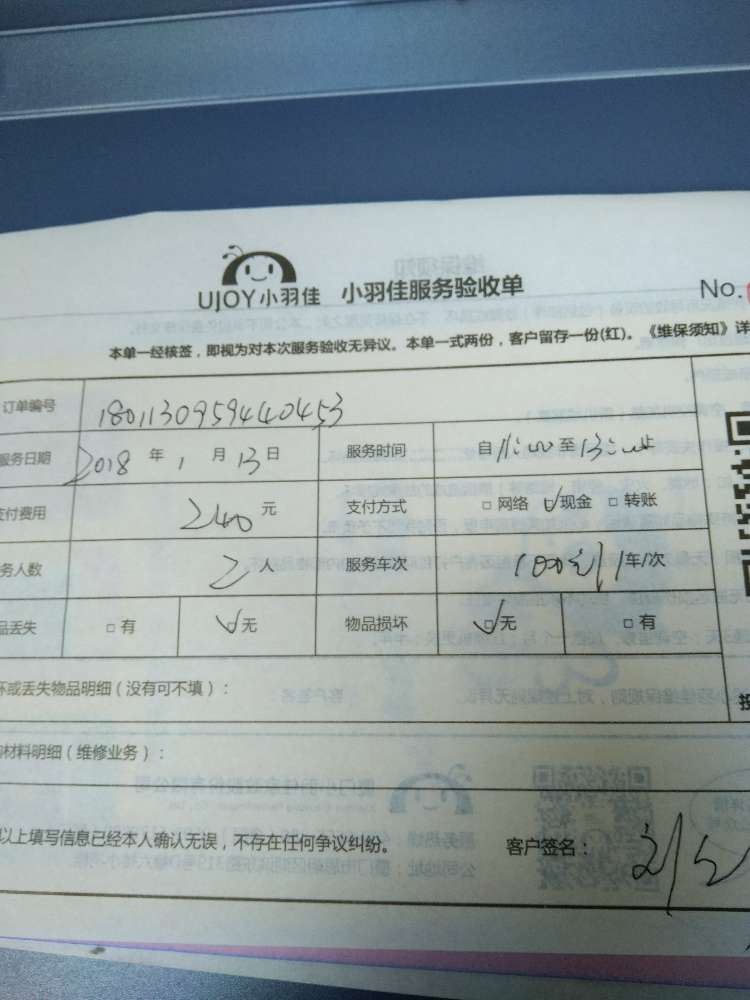 UJOY小羽佳 小羽佳服务验收单 No.
本单一经核签，即视为对本次服务验收无异议。本单一式两份，客户留存一份(红)。《维保须知》详
订单编号 180113095944040453
服务日期 2018 年 1 月 13 日 服务时间 自 11:00 至 13:00 止
支付费用 240 元 支付方式 □ 网络 ☑ 现金 □ 转账
务人数 2 人 服务车次 100元 1 车/次
品丢失 □ 有 ☑ 无 物品损坏 ☑ 无 □ 有
坏或丢失物品明细（没有可不填）：
材料明细（维修业务）：
以上填写信息已经本人确认无误，不存在任何争议纠纷。 客户签名：刘